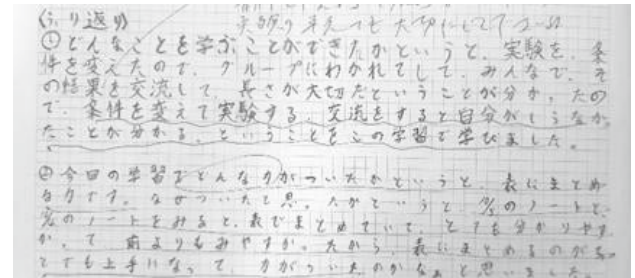 実験の考えても大切にして
〈ふり返り〉
①どんなことを学ぶことができたかというと、実験を、条
件を変えたので、グループにわかれてして、みんなで、そ
の結果を交流して、長さが大切だということが分かったの
で、条件を変えて実験する、交流をすると自分がしらなか
たことが分かる、ということをこの学習で学びました。
②今回の学習でどんな力がついたかというと、表にまとめ
る力です。なぜついたと思ったかというと のノートと、
のノートをみると、表でまとめていて、とても分かりやす
かって 前よりもみやすかったから、表にまとめるのがる
とても上手になって、力がついたのかなぁと思いました。